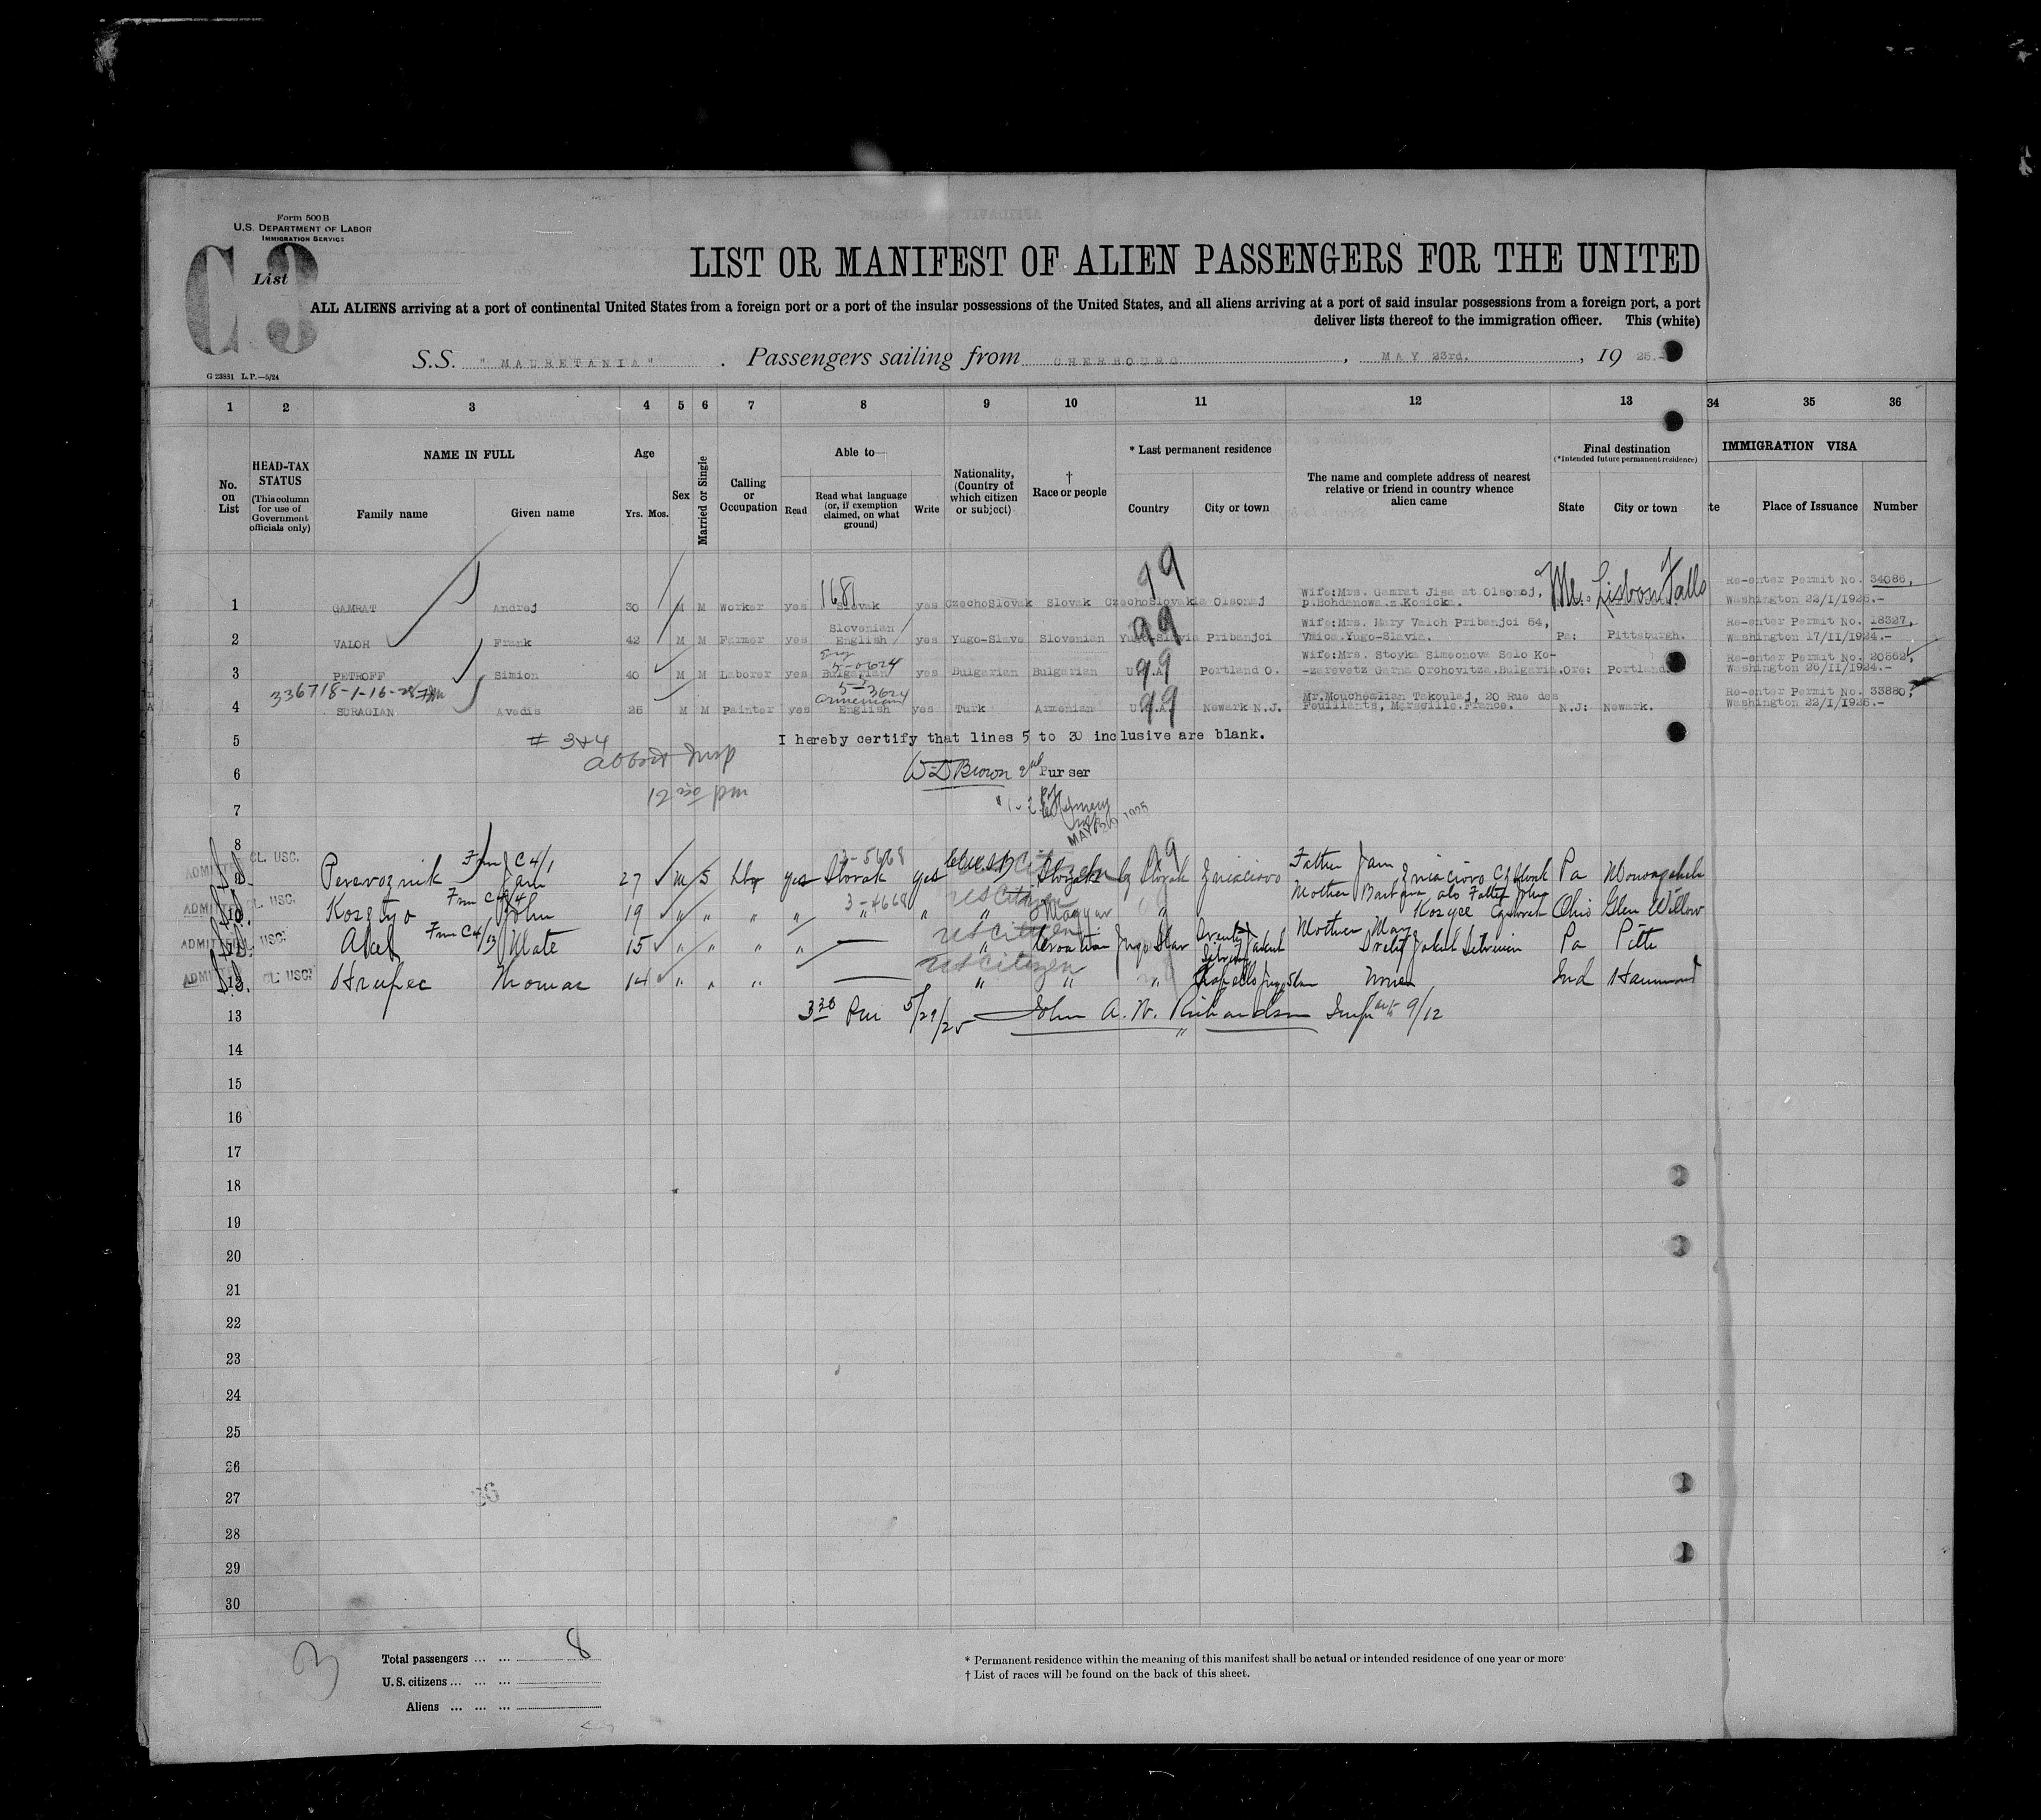 Form 500 B
U.S. DEPARTMENT OF LABOR
IMMIGRATION SERVICE
C 3
List
LIST OR MANIFEST OF ALIEN PASSENGERS FOR THE UNITED
ALL ALIENS arriving at a port of continental United States from a foreign port or a port of the insular possessions of the United States, and all aliens arriving at a port of said insular possessions from a foreign port, a port
deliver lists thereof to the immigration officer. This (white)
S.S. "MAURETANIA". Passengers sailing from CHERBOURG, MAY 23rd., 19 25.-
G 23881 L.P.—5/24
1 2 3 4 5 6 7 8 9 10 11 12 13 34 35 36
No. on List
HEAD-TAX STATUS
(This column for use of Government officials only)
NAME IN FULL
Family name Given name
Age
Yrs. Mos.
Sex
Married or Single
Calling or Occupation
Able to—
Read
Read what language (or, if exemption claimed, on what ground)
Write
Nationality, (Country of which citizen or subject)
† Race or people
* Last permanent residence
Country City or town
The name and complete address of nearest relative or friend in country whence alien came
Final destination
(*Intended future permanent residence)
State City or town
IMMIGRATION VISA
te Place of Issuance Number
99
168
Wife:Mrs. Gamrat Jisa at Olsonoj, Me. Lisbon Falls Re-enter Permit No. 34086,
1 GAMRAT Andrej 30 M M Worker yes Slovak yes CzechoSlovak Slovak CzechoSlovakia Olsonaj p.Bohdanowa.z.Kosicka. Washington 22/I/1925.-
99
Slovenian Wife:Mrs. Mary Valoh Pribanjci 54, Re-enter Permit No. 18327,
2 VALOH Frank 42 M M Farmer yes English yes Yugo-Slave Slovenian Yugo-Slavia Pribanjci Vmica.Yugo-Slavia. Pa: Pittsburgh. Washington 17/II/1924.-
Eng
5-0624 Wife:Mrs. Stoyka Simeonova Selo Ko- Re-enter Permit No. 20862,
3 PETROFF Simion 40 M M Laborer yes Bulgarian yes Bulgarian Bulgarian U.S.A. 99 Portland O. -zarevetz Garna Orchovitza.Bulgaria. Ore: Portland. Washington 26/II/1924.-
336718-1-16-28
5-3624
Armenian Mr.Moucheglian Takoulaj, 20 Rue des Re-enter Permit No. 33880,
4 SURAGIAN Avedis 25 M M Painter yes English yes Turk Armenian U.S.A. 99 Newark N.J. Feuillants, Marseille.France. N.J: Newark. Washington 22/I/1925.-
5 I hereby certify that lines 5 to 30 inclusive are blank.
# 3 & 4
6 W D Brown 2nd Purser
7
MAY 29 1925
8
ADMITTED CL. USC. From C4/1 3-5668 99
9 Perevoznik Jan 27 M S Lbr yes Slovak yes Slovak Cz Slovak Father Jan Pa Monongahela
ADMITTED CL. USC. From C4/4 3-4668 US Citizen
10 John 19 " " " " " " " Magyar " Mother Barbara also Father John Ohio Glen Willow
ADMITTED CL. USC. From C4/13 US Citizen
11 Mate 15 " " " " — " Croatian Jugo Slav Mother Mary Pa Pitts
ADMITTED CL. USC. US Citizen
12 Hrupec Thomas 14 " " " — " " " None Ind Hammond
13 3 30 Pm 5/29/25 John A. W. Richardson Insp 9/12
14
15
16
17
18
19
20
21
22
23
24
25
26
27
28
29
30
Total passengers ... ... 8
U.S. citizens ... ... ...
Aliens ... ... ...
* Permanent residence within the meaning of this manifest shall be actual or intended residence of one year or more
† List of races will be found on the back of this sheet.